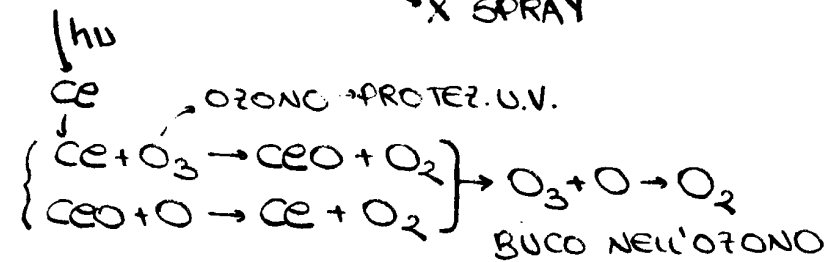 *X SPRAY
hν
Cl
OZONO → PROTEZ. U.V.
Cl + O₃ → ClO + O₂
ClO + O → Cl + O₂
→ O₃ + O → O₂
BUCO NELL'OZONO